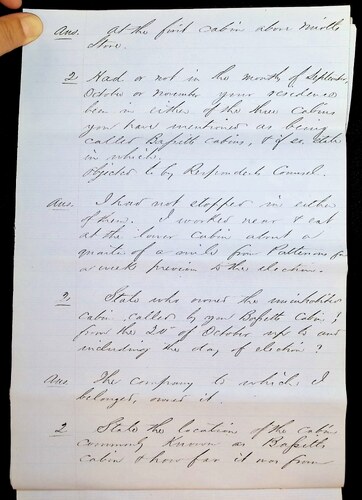 Ans. At the first cabin above Middle
Store.
2 Had or not in the month of September,
October or November your residence
been in either of the three cabins
you have mentioned as being
called Bassetts cabins, & if so state
in which.
Objected to by Respondents Counsel.
Ans. I had not stopped in either
of them. I worked near & eat
at the lower cabin about a
quarter of a mile from Pattersons for
a week previous to the election.
2. State who owned the uninhabited
cabin called by you Bassetts Cabin?
from the 20th of October up to and
including the day of election?
Ans The company to which I
belonged, owned it.
2 State the location of the cabin
commonly known as Bassetts
cabin & how far it was from